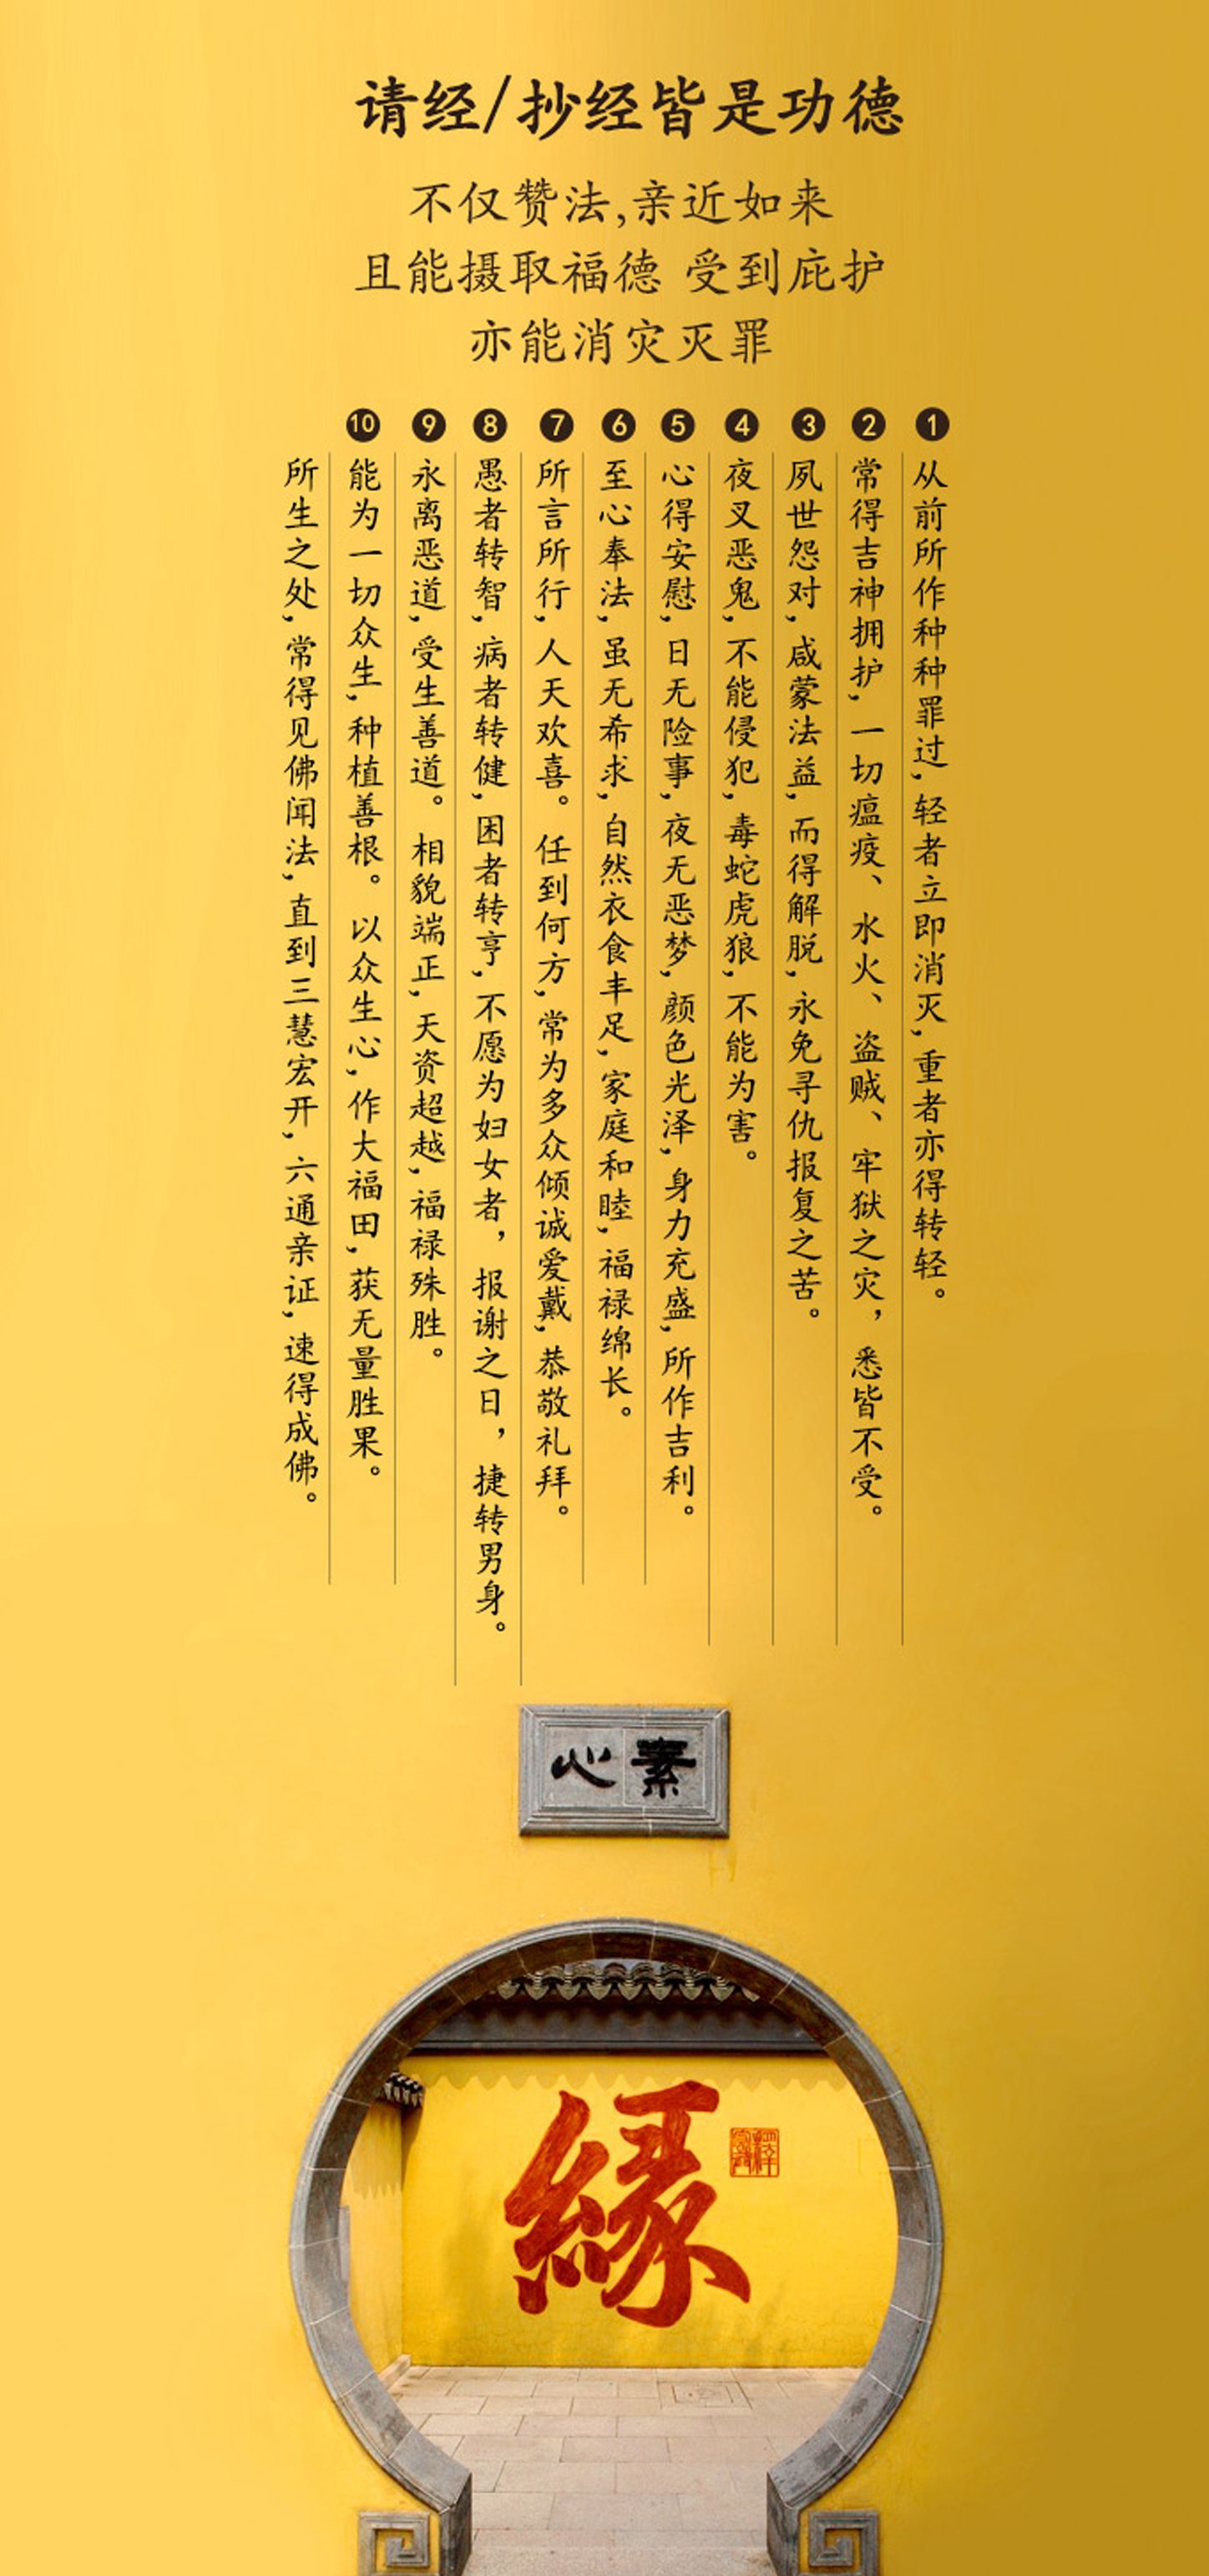 请经/抄经皆是功德
不仅赞法,亲近如来
且能摄取福德 受到庇护
亦能消灾灭罪
1 从前所作种种罪过,轻者立即消灭,重者亦得转轻。
2 常得吉神拥护,一切瘟疫、水火、盗贼、牢狱之灾，悉皆不受。
3 夙世怨对,咸蒙法益,而得解脱,永免寻仇报复之苦。
4 夜叉恶鬼,不能侵犯,毒蛇虎狼,不能为害。
5 心得安慰,日无险事,夜无恶梦,颜色光泽,身力充盛,所作吉利。
6 至心奉法,虽无希求,自然衣食丰足,家庭和睦,福禄绵长。
7 所言所行,人天欢喜。任到何方,常为多众倾诚爱戴,恭敬礼拜。
8 愚者转智,病者转健,困者转亨,不愿为妇女者，报谢之日，捷转男身。
9 永离恶道,受生善道。相貌端正,天资超越,福禄殊胜。
10 能为一切众生,种植善根。以众生心,作大福田,获无量胜果。
所生之处,常得见佛闻法,直到三慧宏开,六通亲证,速得成佛。
素心
緣